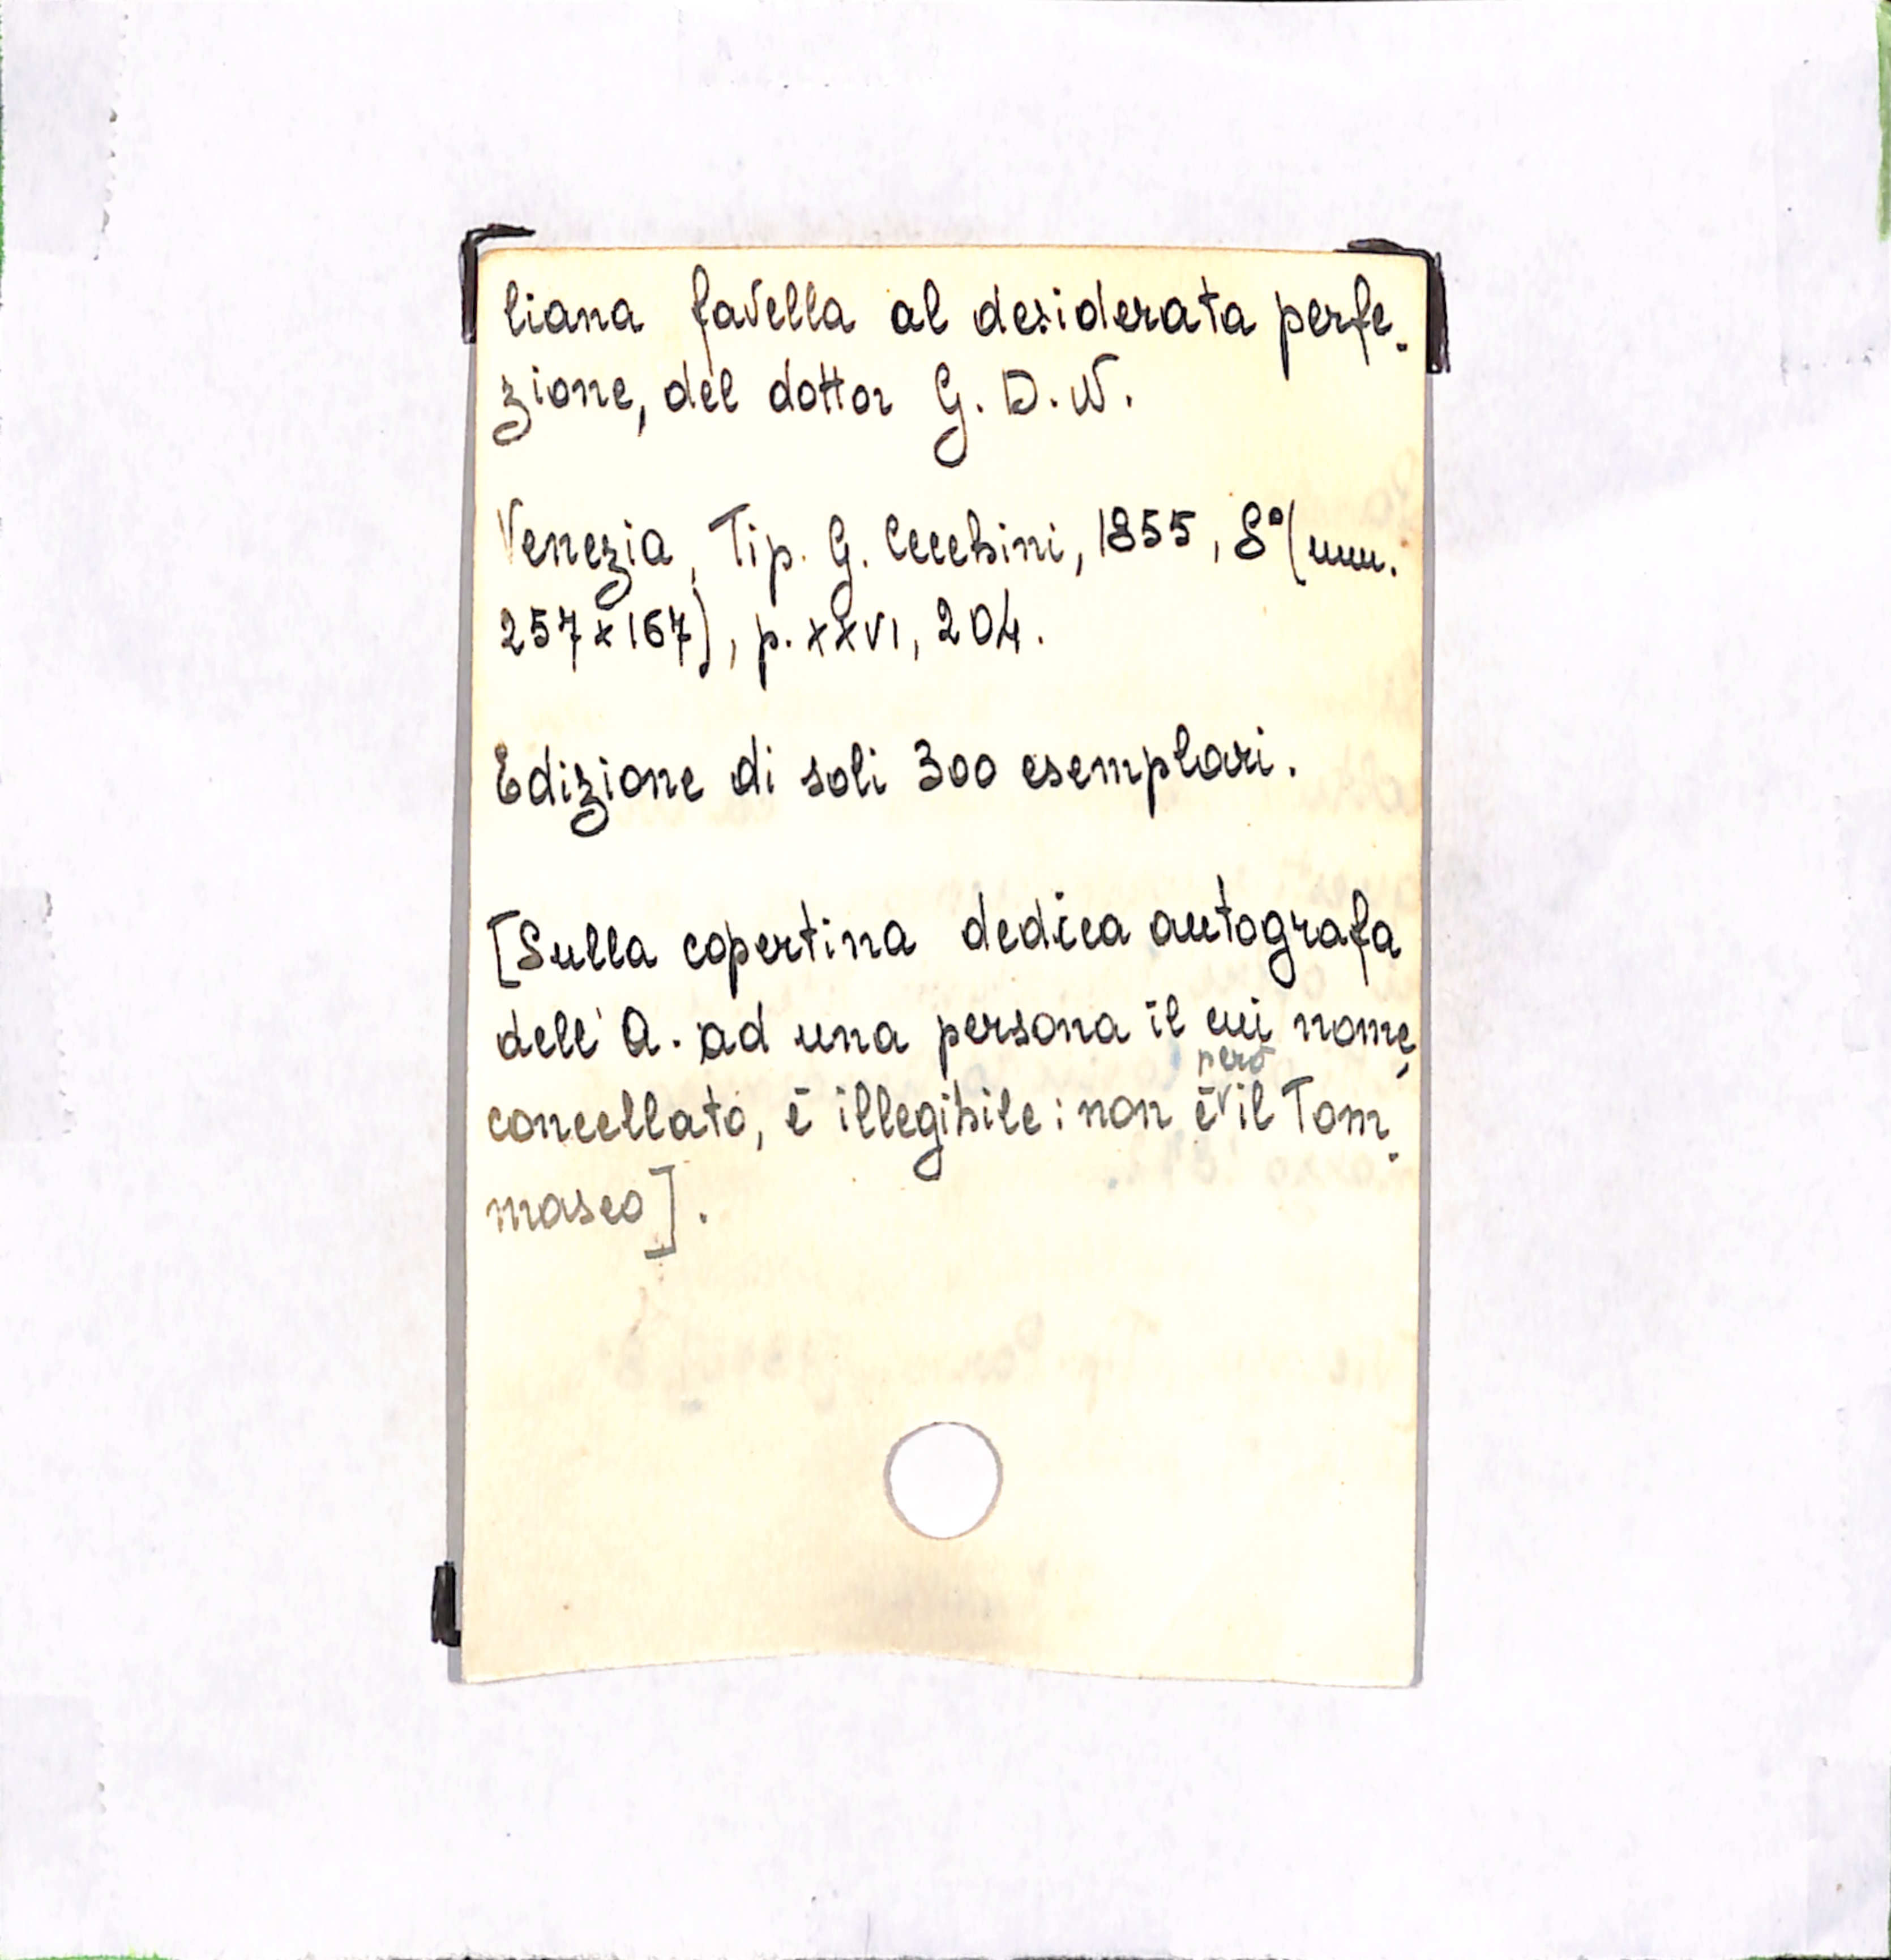 liana favella al desiderata perfe-
zione, del dottor G. D. N.
Venezia, Tip. G. Cecchini, 1855, 8° (mm.
257x167), p. XXVI, 204.
Edizione di soli 300 esemplari.
[Sulla copertina dedica autografa
dell'A. ad una persona il cui nome,
concellato, è illegibile: non è però il Tom-
maseo].